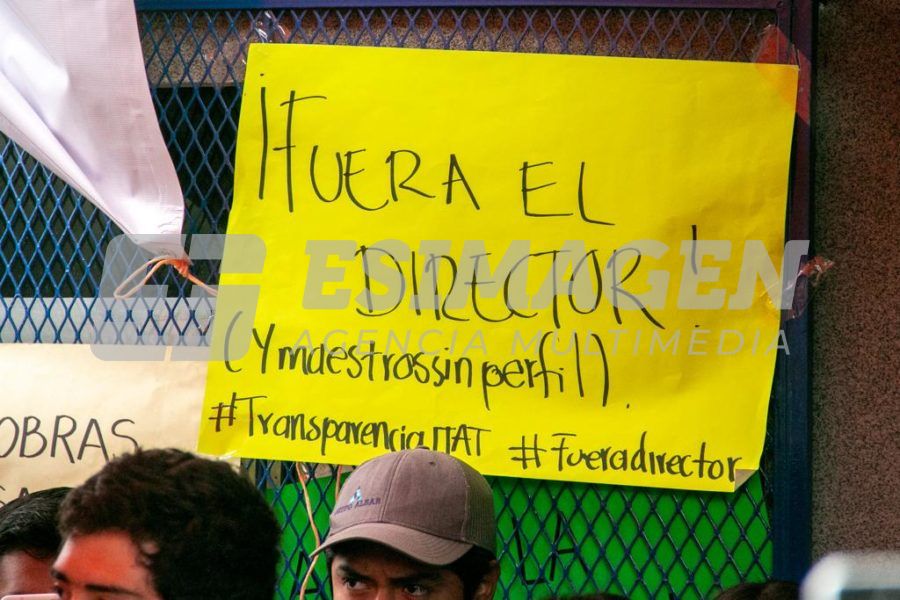 ¡FUERA EL
DIRECTOR!
(Y maestros sin perfil).
#TransparenciaITAT #Fueradirector
OBRAS,
ESIMAGEN
AGENCIA MULTIMEDIA
GRUPO ALBAR
LA